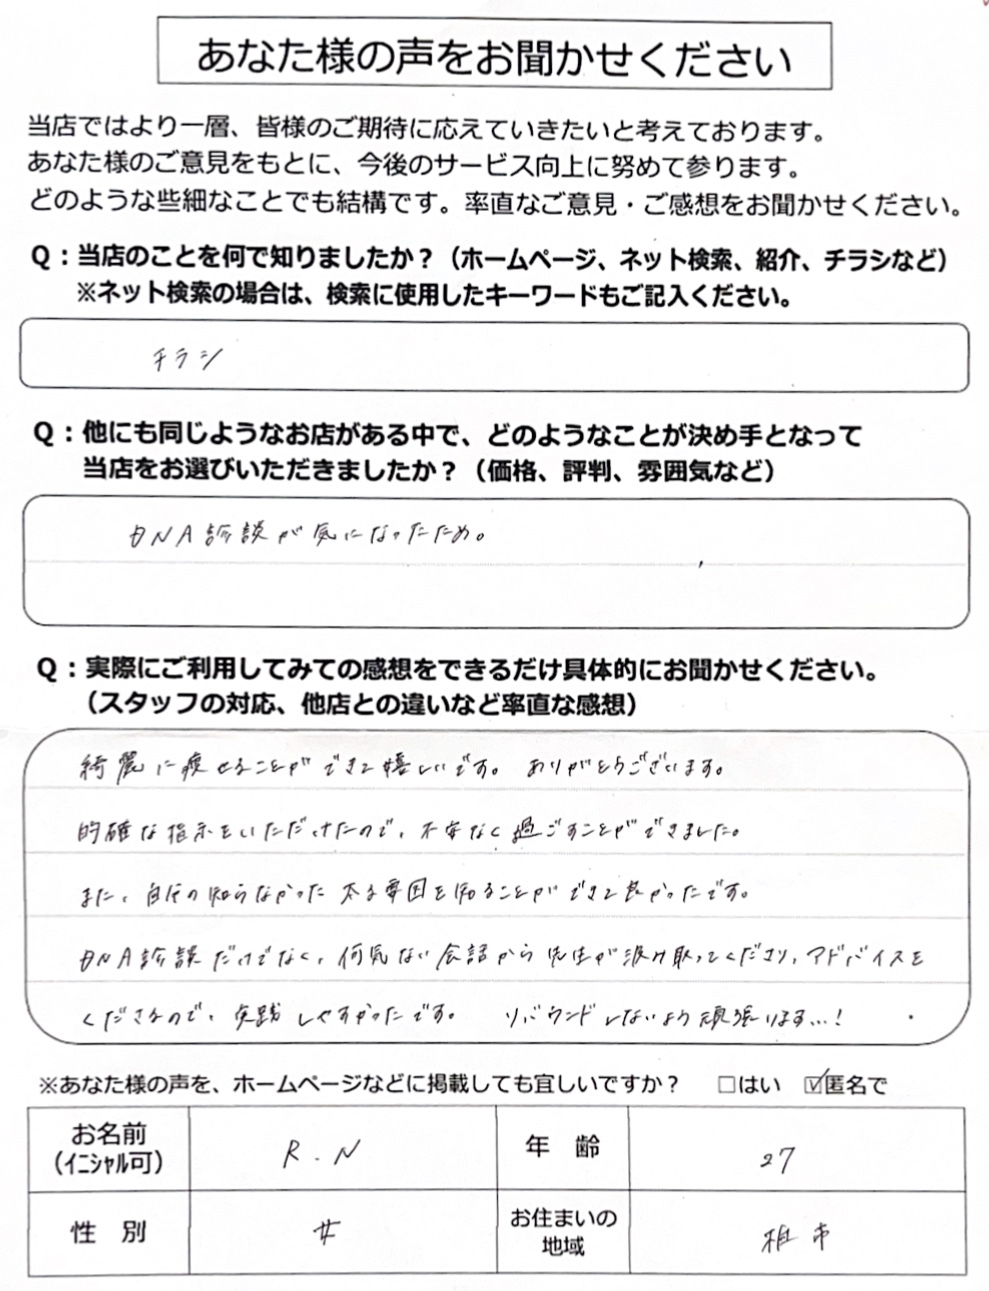 あなた様の声をお聞かせください
当店ではより一層、皆様のご期待に応えていきたいと考えております。
あなた様のご意見をもとに、今後のサービス向上に努めて参ります。
どのような些細なことでも結構です。率直なご意見・ご感想をお聞かせください。
Q：当店のことを何で知りましたか？（ホームページ、ネット検索、紹介、チラシなど）
※ネット検索の場合は、検索に使用したキーワードもご記入ください。
チラシ
Q：他にも同じようなお店がある中で、どのようなことが決め手となって
当店をお選びいただきましたか？（価格、評判、雰囲気など）
DNA診談が気になったため。
Q：実際にご利用してみての感想をできるだけ具体的にお聞かせください。
（スタッフの対応、他店との違いなど率直な感想）
綺麗に痩せることができて嬉しいです。ありがとうございます。
的確な指示をいただけたので、不安なく過ごすことができました。
また、自分の知らなかった太る要因を知ることができて良かったです。
DNA診談だけでなく、何気ない会話から先生が汲み取ってくださり、アドバイスを
くださるので、実践しやすかったです。 リバウンドしないよう頑張ります…！
※あなた様の声を、ホームページなどに掲載しても宜しいですか？ □はい ☑匿名で
お名前 R.N 年 齢 27
（イニシャル可）
性 別 女 お住まいの 市
地域